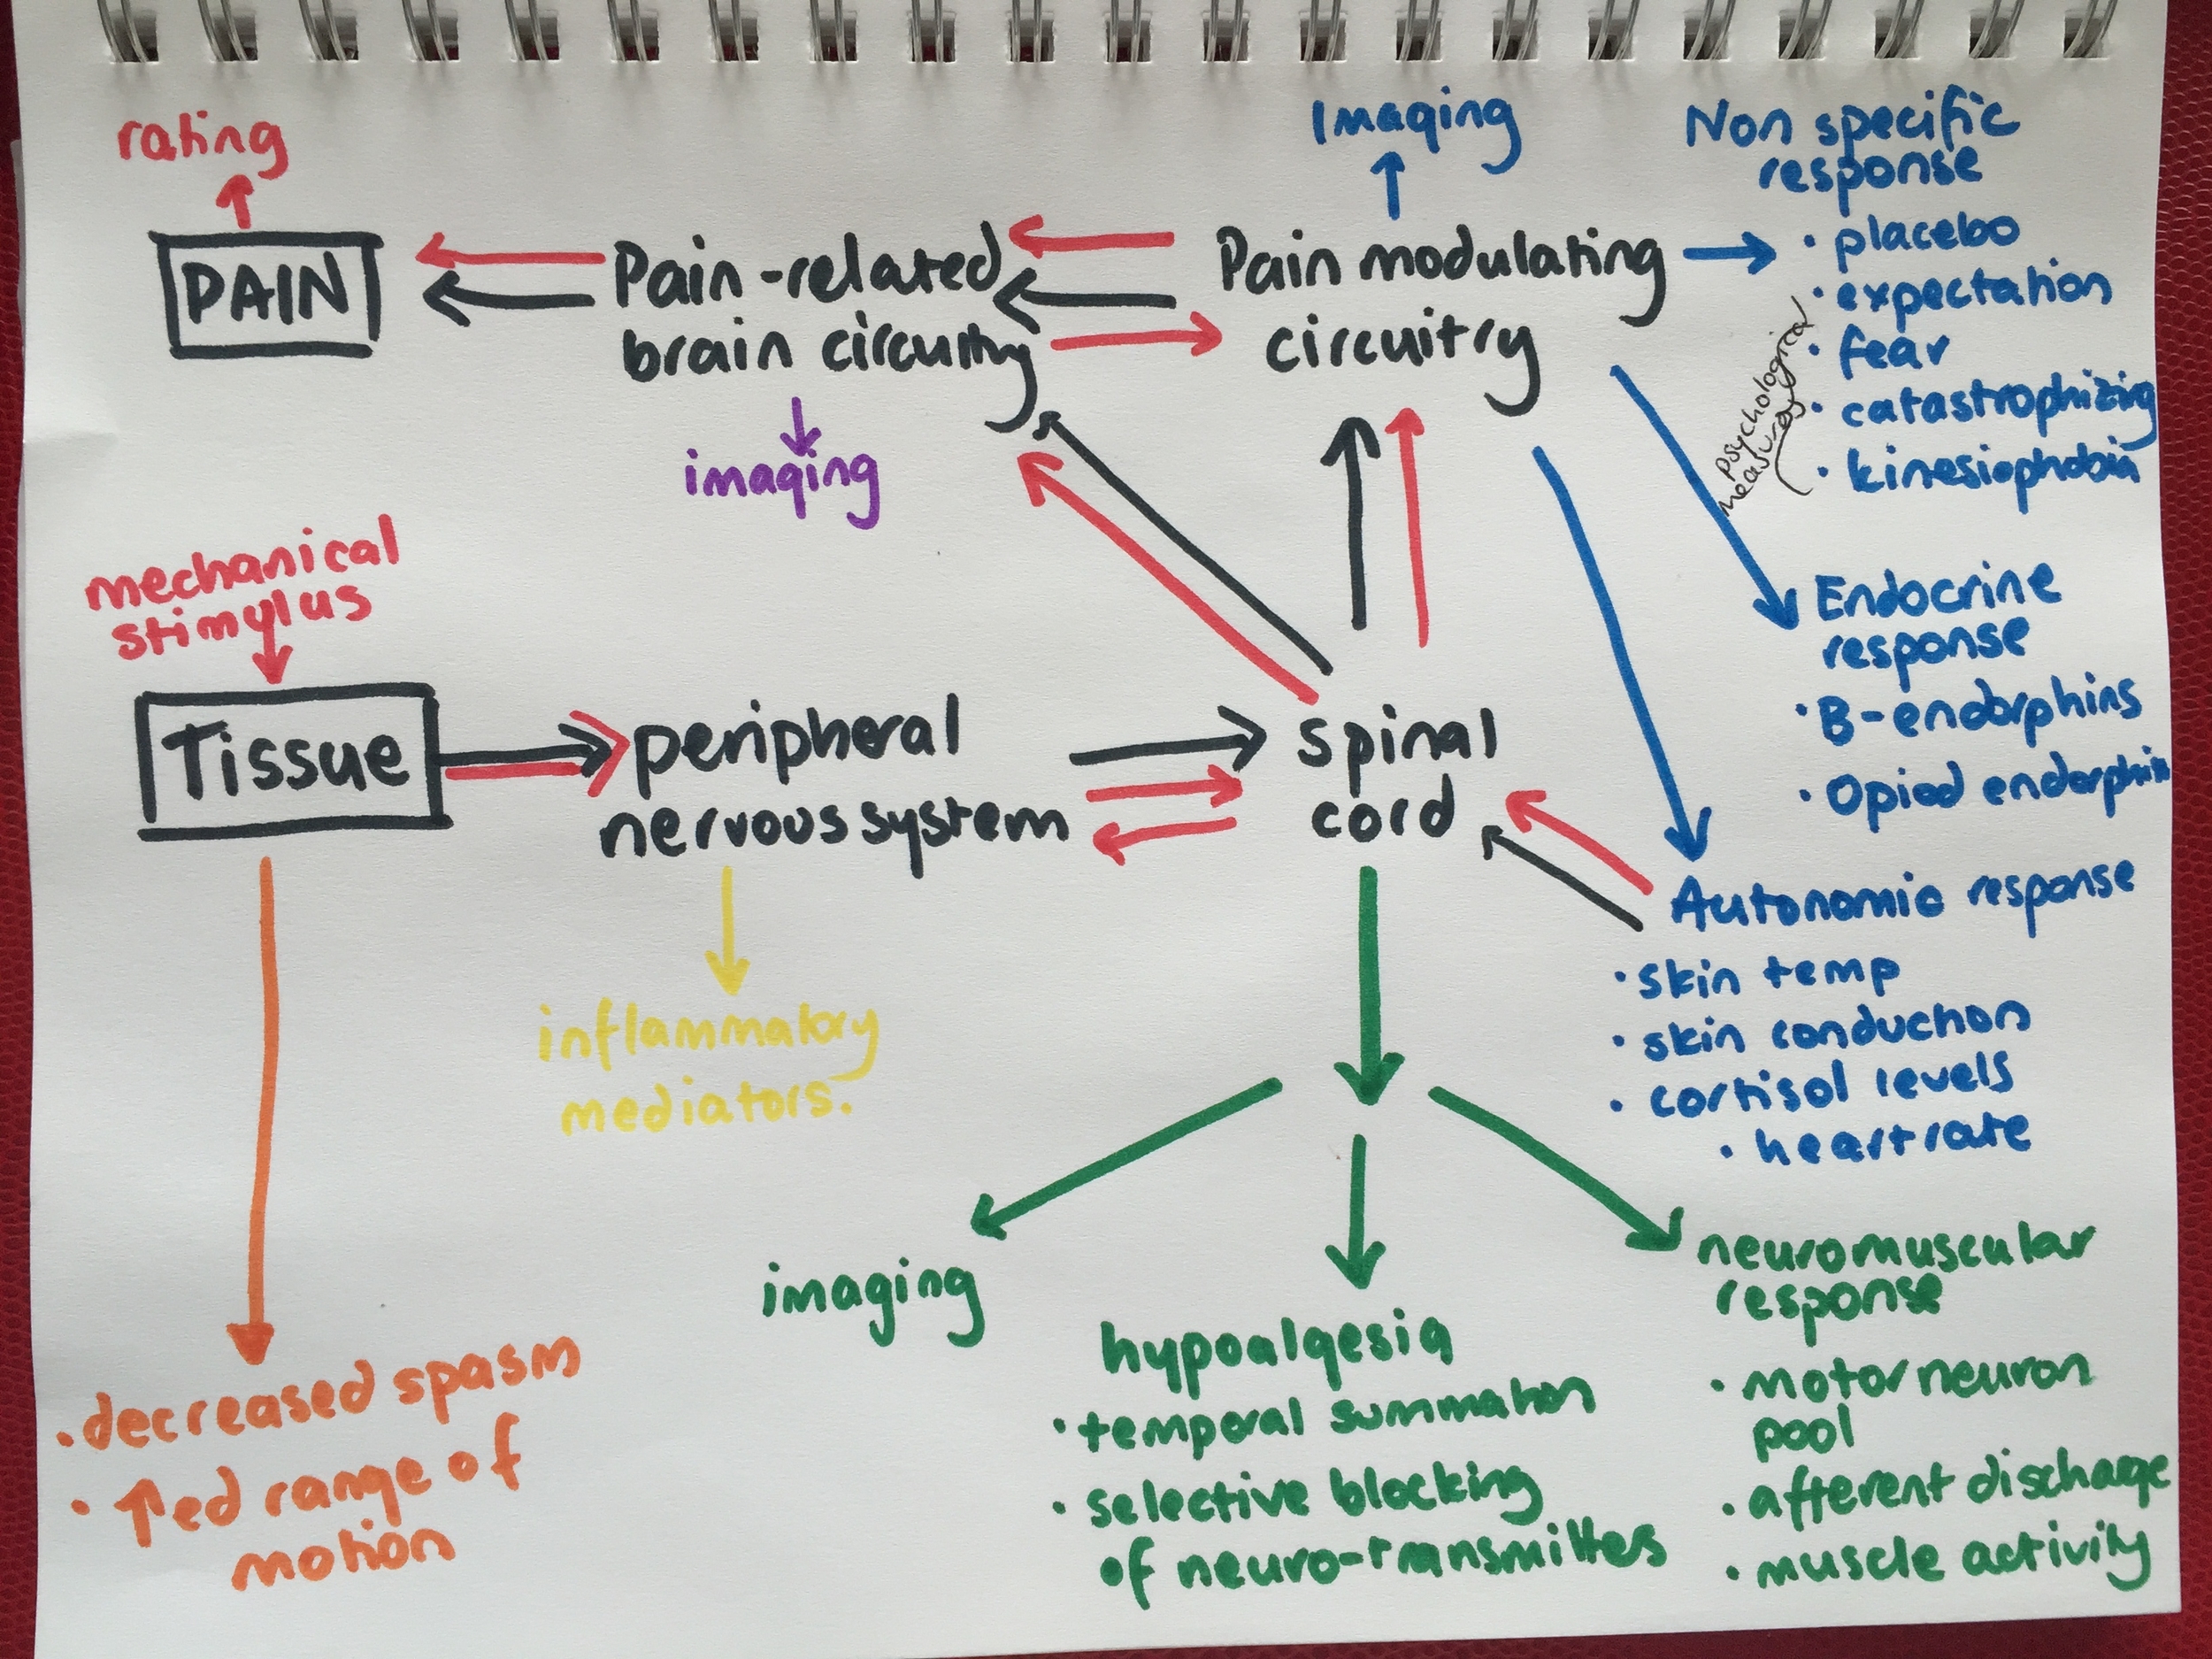 rating
PAIN
Pain-related
brain circuitry
imaging
Imaging
Pain modulating
circuitry
Non specific
response
• placebo
• expectation
• fear
• catastrophizing
• kinesiophobia
psychological
measures
mechanical
stimulus
Tissue
peripheral
nervous system
spinal
cord
Endocrine
response
• B-endorphins
• Opiod endorphin
Autonomic response
• skin temp
• skin conduction
• cortisol levels
• heart rate
inflammatory
mediators.
• decreased spasm
• ↑ed range of
motion
imaging
hypoalgesia
• temporal summation
• selective blocking
of neuro-transmittes
neuromuscular
response
• motor neuron
pool
• afferent discharge
• muscle activity